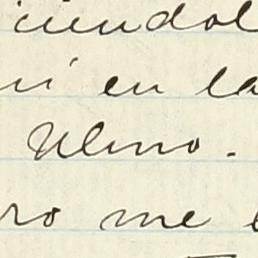 iendol
í en la
Ulmo.
ro me